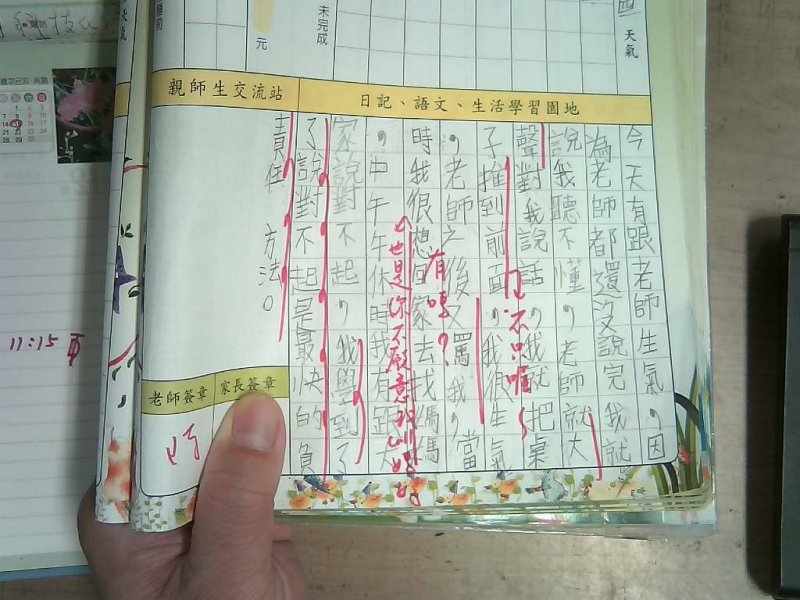 天氣
未完成
元
天氣
親師生交流站
日記、語文、生活學習園地
今天有跟老師生氣,因
為老師都還沒說完我就
說我聽不懂,老師就大
聲對我說話,我就把桌
子推到前面,我很生氣
,老師之後又罵我,當
時我很想回家去找媽媽
,中午午休時我有跟大
家說對不起,我學到了
了說對不起是最快的負
責任方法。
不只喔
有嗎?
也是你不願意
老師簽章
家長簽章
11:15